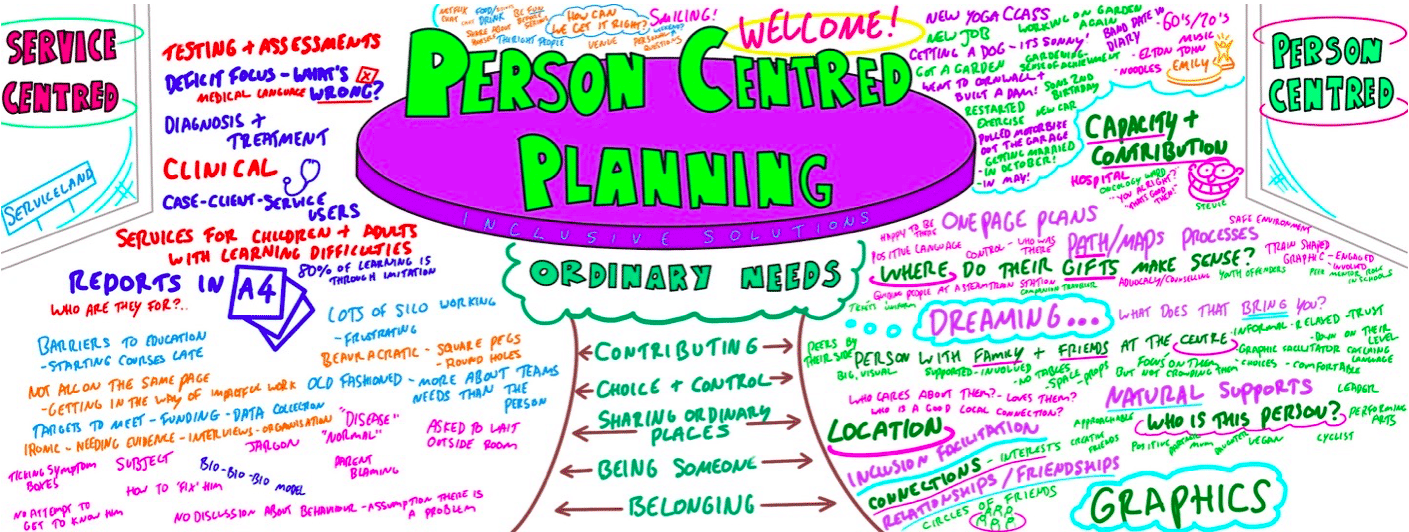 SERVICE
CENTRED
SERVICELAND
TESTING + ASSESSMENTS
DEFICIT FOCUS - WHAT'S
MEDICAL LANGUAGE WRONG?
DIAGNOSIS +
TREATMENT
CLINICAL
CASE-CLIENT-SERVICE
USERS
SERVICES FOR CHILDREN + ADULTS
WITH LEARNING DIFFICULTIES
REPORTS IN A4
80% OF LEARNING IS
THROUGH IMITATION
WHO ARE THEY FOR?..
LOTS OF SILO WORKING
- FRUSTRATING
BARRIERS TO EDUCATION
- STARTING COURSES LATE
BEAURACRATIC - SQUARE PEGS
- ROUND HOLES
NOT ALL ON THE SAME PAGE
- GETTING IN THE WAY OF IMPACTFUL WORK
OLD FASHIONED - MORE ABOUT TEAMS
NEEDS THAN THE
PERSON
TARGETS TO MEET - FUNDING - DATA COLLECTION
IRONIC - NEEDING EVIDENCE - INTERVIEWS - ORGANISATION
"DISEASE"
"NORMAL"
JARGON
ASKED TO WAIT
OUTSIDE ROOM
TICKING SYMPTOM
BOXES
SUBJECT
HOW TO 'FIX' HIM
BIO-BIO-BIO MODEL
PARENT
BLAMING
NO ATTEMPT TO
GET TO KNOW HIM
NO DISCUSSION ABOUT BEHAVIOUR - ASSUMPTION THERE IS
A PROBLEM
NETFLIX
CHAT
FOOD/
DRINK
BE FUN
SHARE ABOUT
YOURSELF
THE RIGHT PEOPLE
HOW CAN
WE GET IT RIGHT?
VENUE
SMILING!
PERSONAL
QUESTIONS
WELCOME!
PERSON CENTRED
PLANNING
INCLUSIVE SOLUTIONS
ORDINARY NEEDS
CONTRIBUTING
CHOICE + CONTROL
SHARING ORDINARY
PLACES
BEING SOMEONE
BELONGING
NEW YOGA CLASS
NEW JOB
WORKING ON GARDEN
AGAIN
GETTING A DOG - ITS SONNY!
GOT A GARDEN
GARDENING -
SENSE OF ACHIEVEMENT
WENT TO CORNWALL +
BUILT A DAM!
SONS 2ND
BIRTHDAY
RESTARTED
EXERCISE
NEW CAR
PULLED MOTORBIKE
OUT THE GARAGE
GETTING MARRIED
- IN OCTOBER!
- IN MAY!
BAND DATE IN
DIARY
- 60'S/70'S
MUSIC
- ELTON JOHN
- NOODLES
EMILY
CAPACITY +
CONTRIBUTION
HOSPITAL
ONCOLOGY WARD
"YOU ALRIGHT?"
"THATS GOOD
THEN!"
STEVIE
PERSON
CENTRED
HAPPY TO BE
THERE
ONE PAGE PLANS
POSITIVE LANGUAGE
CONTROL - WHO WAS
THERE
PATH/MAPS PROCESSES
SAFE ENVIRONMENT
TRAIN SHAPED
GRAPHIC - ENGAGED
INVOLVED
PEER MENTOR ROLE
IN SCHOOLS
WHERE DO THEIR GIFTS MAKE SENSE?
GUIDING PEOPLE AT A STEAM TRAIN STATION
COMPANION TRAVELLER
ADVOCACY/COUNSELLING YOUTH OFFENDERS
TICKETS UNIFORM
DREAMING...
WHAT DOES THAT BRING YOU?
PEERS BY
THEIR SIDE
BIG, VISUAL
PERSON WITH FAMILY + FRIENDS AT THE CENTRE
SUPPORTED - INVOLVED
- NO TABLES
- SPACE - PROPS
- INFORMAL - RELAXED - TRUST
- DOWN ON THEIR
LEVEL
FOCUS ON THEM
BUT NOT CROWDING THEM
- GRAPHIC FACILITATOR CHECKING
LANGUAGE
- CHOICES - COMFORTABLE
WHO CARES ABOUT THEM? - LOVES THEM?
WHO IS A GOOD LOCAL CONNECTION?
LOCATION
NATURAL SUPPORTS
LEADER
APPROACHABLE
WHO IS THIS PERSON?
PERFORMING
ARTS
CREATIVE
FRIENDS
POSITIVE
MUM
DAUGHTER
VEGAN
CYCLIST
INCLUSION FACILITATION
CONNECTIONS - INTERESTS
RELATIONSHIPS/FRIENDSHIPS
CIRCLES OF FRIENDS
GRAPHICS